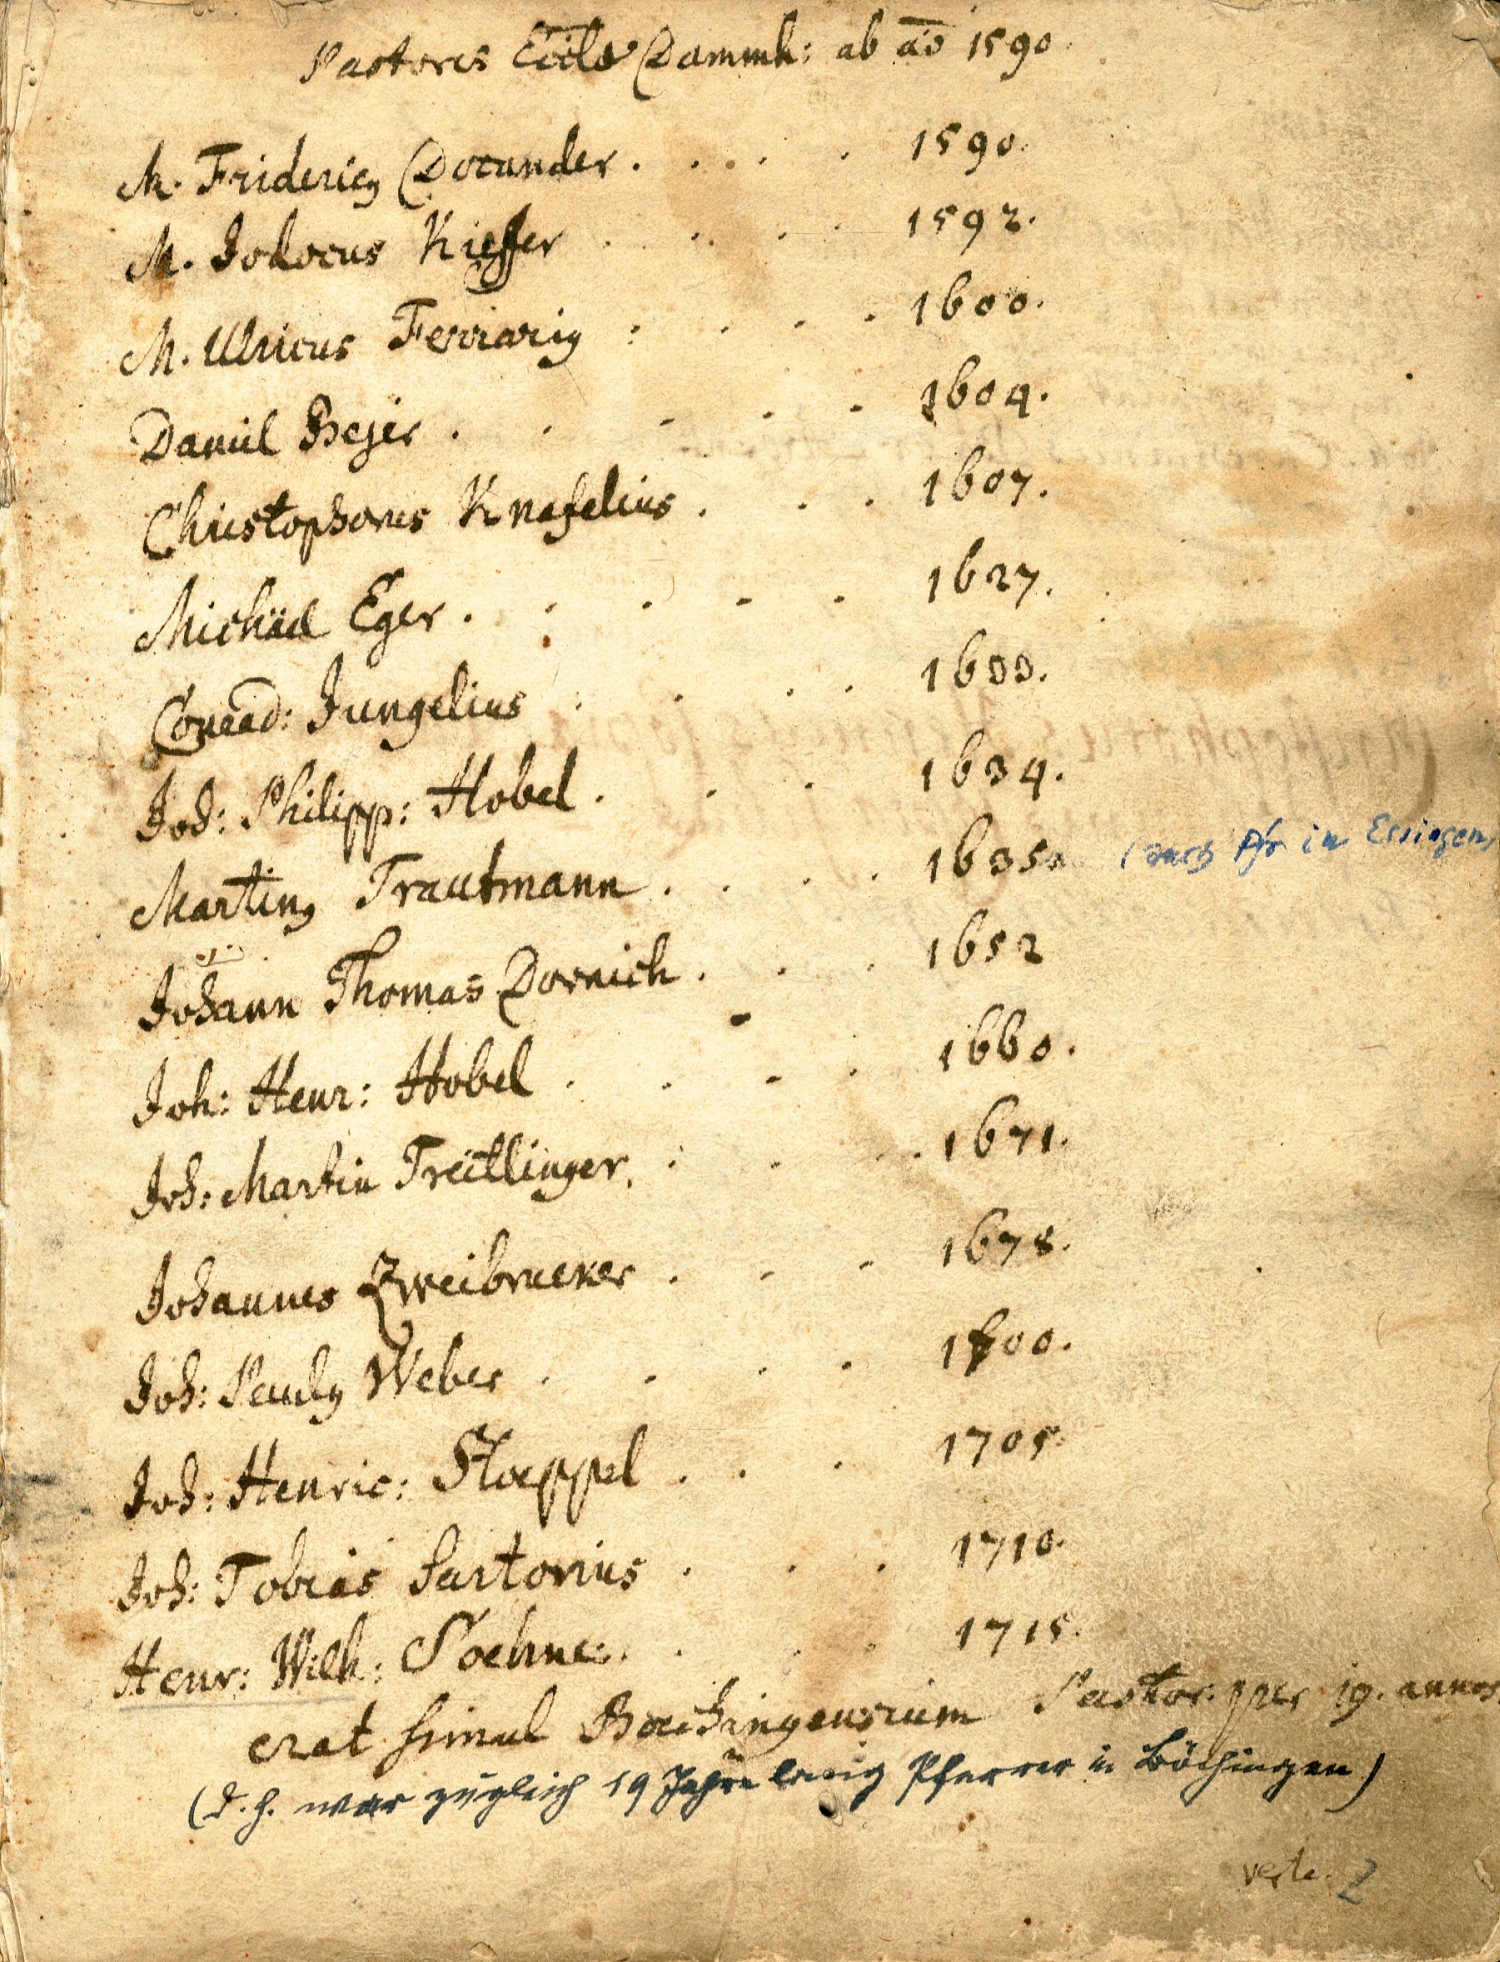 Pastores Eccls Dammh: ab ao 1590.
M. Fridericq Docander . . . . 1590.
M. Jodocus Kieffer . . . . 1592.
M. Ulricus Ferrariq . . . . 1600.
Daniel Beger . . . . . 1604.
Christophorus Knafelius . . . 1607.
Michäel Eger . . . . . 1627.
Conrad: Jungelius . . . . 1633.
Joh: Philipp: Hobel . . . 1634.
Martinq Trautmann . . . . 1635. (auch Pfr in Essingen)
Johann Thomas Dornich . . . 1652
Joh: Henr: Hobel . . . . 1660.
Joh: Martin Treitlinger. . . . 1671.
Johannes Zweibrucker . . . 1678.
Joh: Paulq Weber . . . . 1700.
Joh: Henric: Stoeppel . . . 1705.
Joh: Tobias Sartorius . . . 1710.
Henr: Wilh: Soehne. . . . 1715.
erat simul Boechingensium Pastor per 19. annos
(d.h. war zugleich 19 Jahre lang Pfarrer in Böchingen)
verte. 2